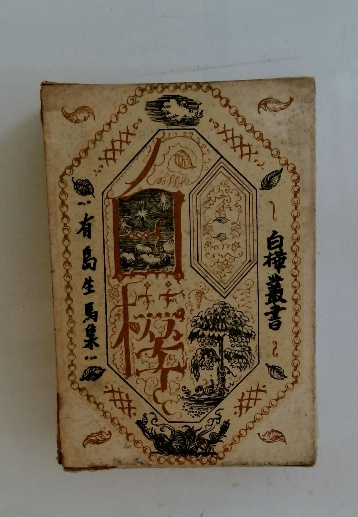 白樺叢書
白樺
有島生馬集